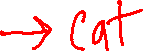 → cat